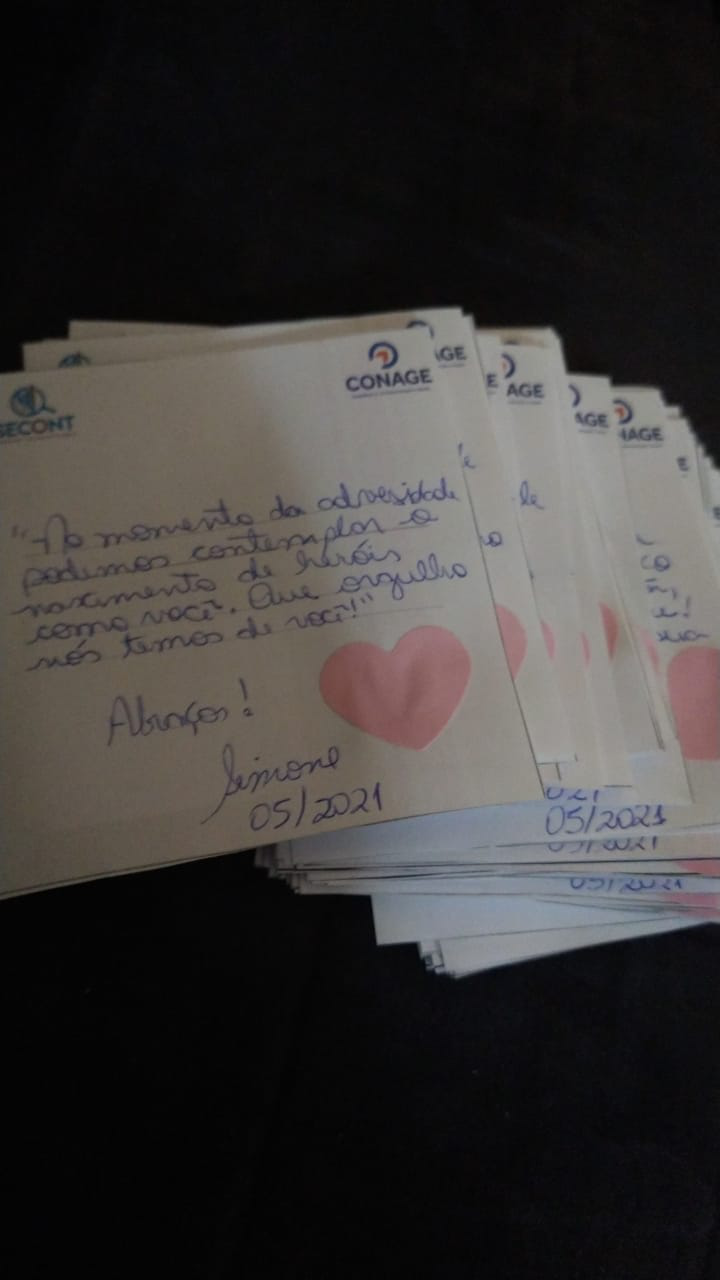 SECONT
CONAGE
"No momento da adversidade
podemos contemplar o
nascimento de heróis
como você. Que orgulho
nós temos de você!"
Abraços!
Simone
05/2021
AGE
AGE
AGE
NAGE
05/2021
05/2021